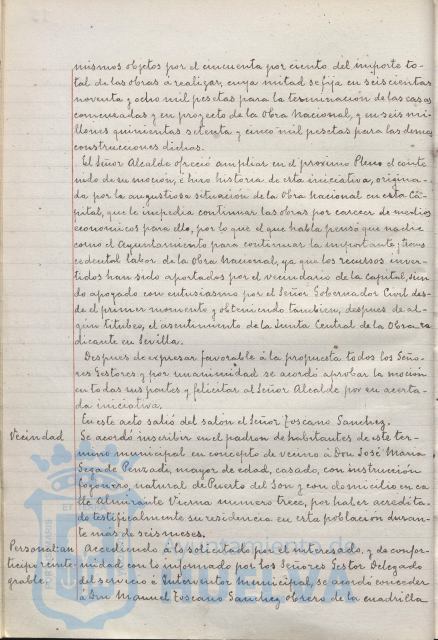 mismos objetos por el cincuenta por ciento del importe to-
tal de las obras á realizar, cuya mitad se fija en seiscientas
noventa y ocho mil pesetas para la terminación de las casas
comenzadas y en proyecto de la Obra Nacional, y en seis mi-
llones quinientas setenta y cinco mil pesetas para las demas
construcciones dichas.
El Señor Alcalde ofreció ampliar en el proximo Pleno el conte
nido de su moción, é hizo historia de esta iniciativa, origina-
da por la angustiosa situación de la Obra Nacional en esta Ca-
pital, que le impedia continuar las obras por carecer de medios
economicos para ello, por lo que el que habla pensó que nadie
como el Ayuntamiento para continuar la importante y tras
cedental labor de la Obra Nacional, ya que los recursos inver-
tidos han sido aportados por el vecindario de la capital, sien
do apoyado con entusiasmo por el Señor Gobernador Civil des-
de el primer momento y obteniendo tambien, despues de al-
gún titubeo, el asentimiento de la Junta Central de la Obra ra
dicante en Sevilla.
Despues de expresar favorable á la propuesta todos los Seño-
res Gestores y por unanimidad se acordó aprobar la moción
en todas sus partes y felicitar al Señor Alcalde por su acerta-
da iniciativa.
En este acto salió del salon el Señor Toscano Sanchez.
Vecindad Se acordó inscribir en el padron de habitantes de este ter-
mino municipal en concepto de vecino á Don José Maria
Sega de Penzada, mayor de edad, casado, con instrucción
fogonero, natural de Puerto del Son y con domicilio en ca
lle Almirante Vierna numero trece, por haber acredita-
do testificalmente su residencia en esta población duran-
te más de seis meses.
Personal: an Accediendo á lo solicitado por el interesado, y de confor-
ticipo reinte- midad con lo informado por los Señores Gestor Delegado
grable. del servicio é Interventor Municipal, se acordó conceder
á Don Manuel Toscano Sanchez obrero de la cuadrilla